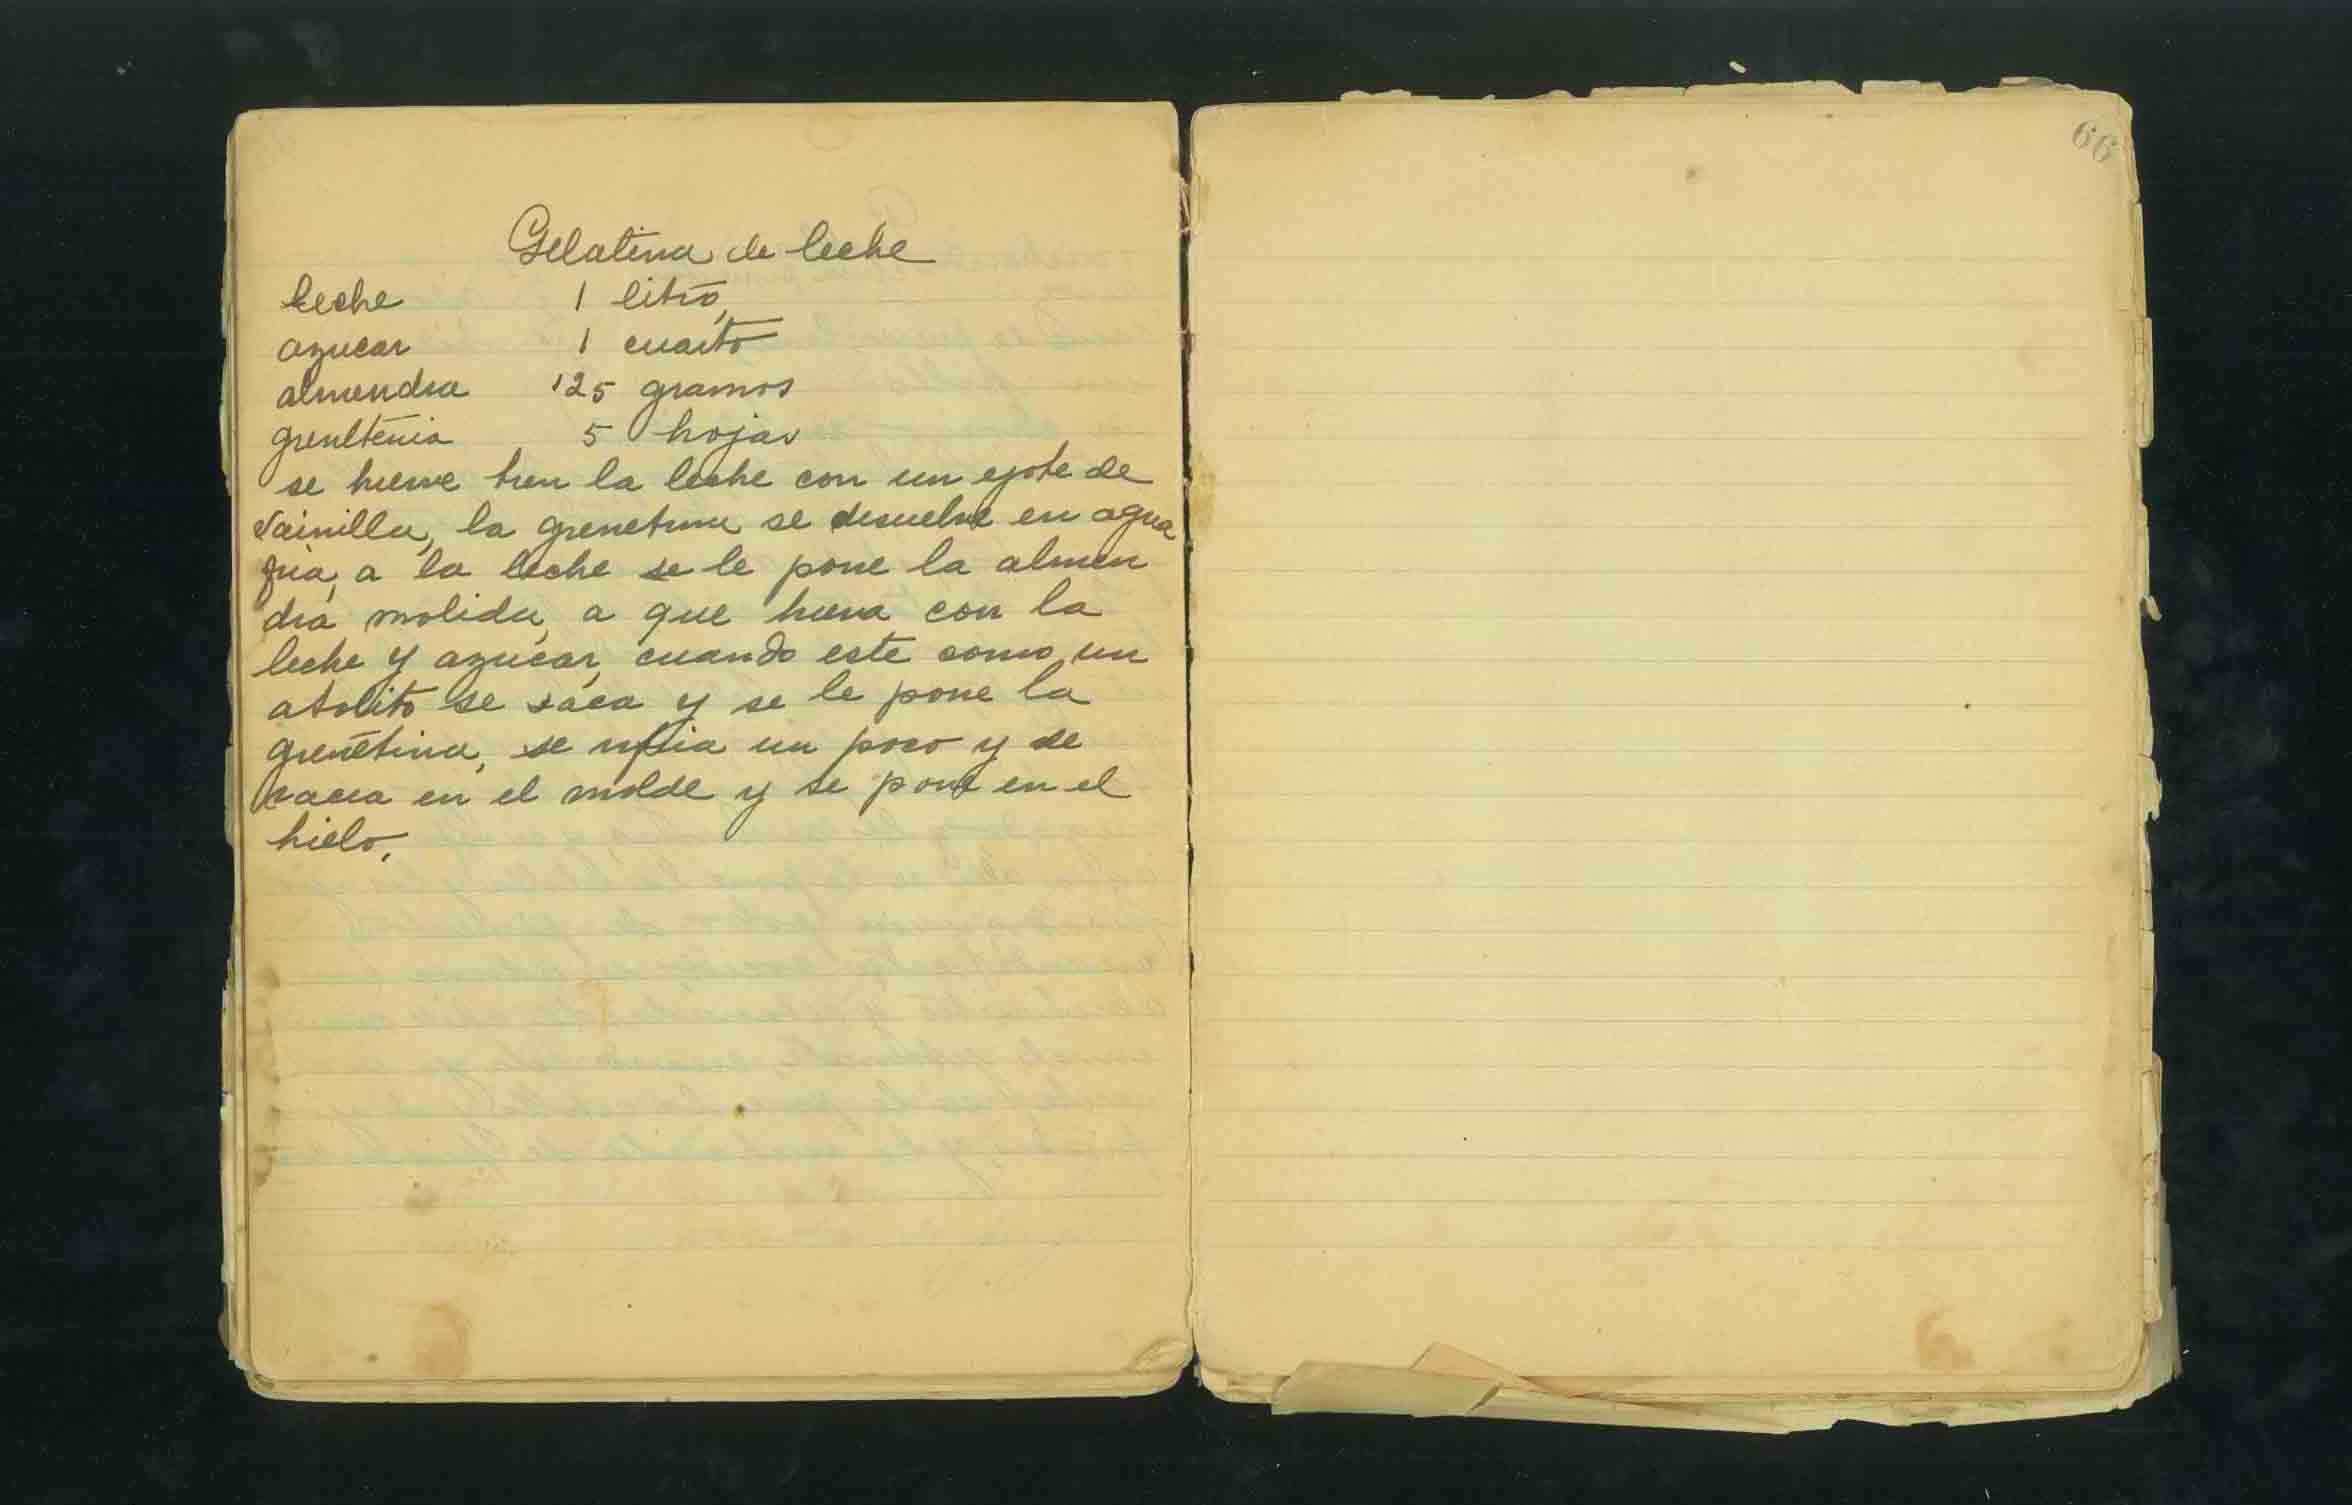 Gelatina de leche
leche 1 litro,
azucar 1 cuarto
almendra 125 gramos
grenltenia 5 hojas
se hierve bien la leche con un ejote de
vainilla, la grenetina se disuelve en agua
fria, a la leche se le pone la almen
dra molida, a que hierva con la
leche y azucar, cuando este como un
atolito se saca y se le pone la
grenetina, se nfria un poco y se
vacia en el molde y se pone en el
hielo.
66